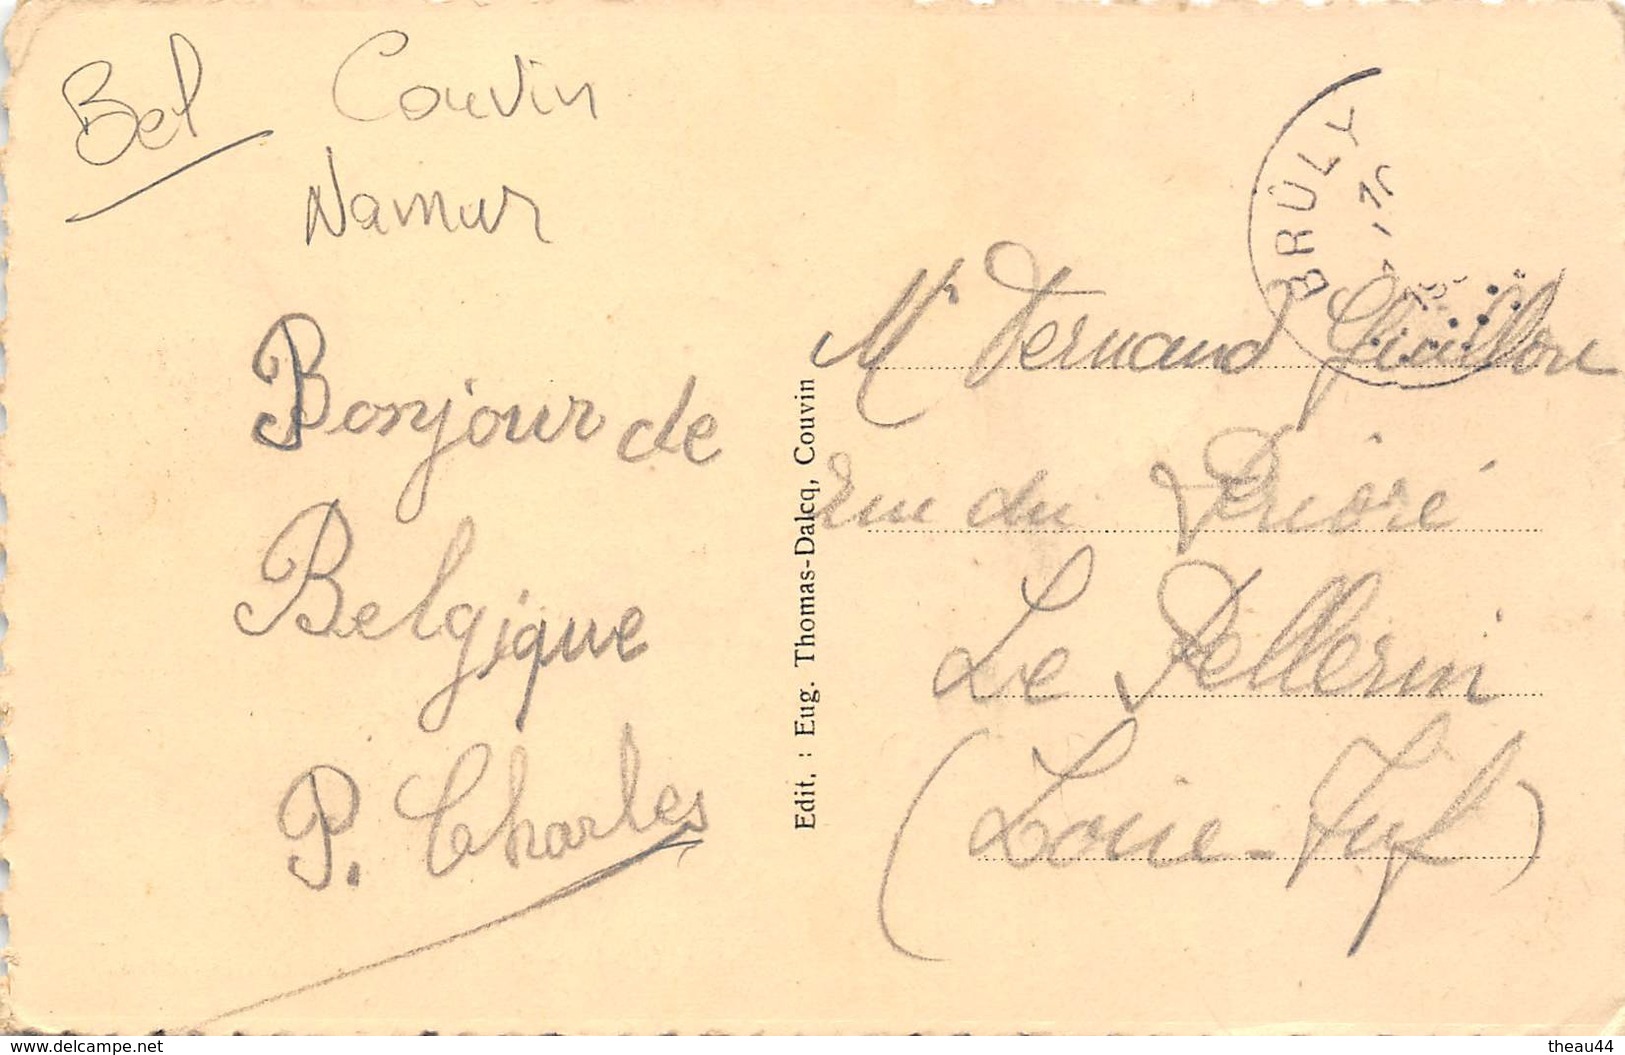 Bel
Couvin
Namur
Bonjour de
Belgique
P. Charles
Edit. : Eug. Thomas-Dalcq, Couvin
BRÛLY
Mr Fernand Guillou
rue du Prieuré
Le Pellerin
(Loire-Inf)
www.delcampe.net
theau44